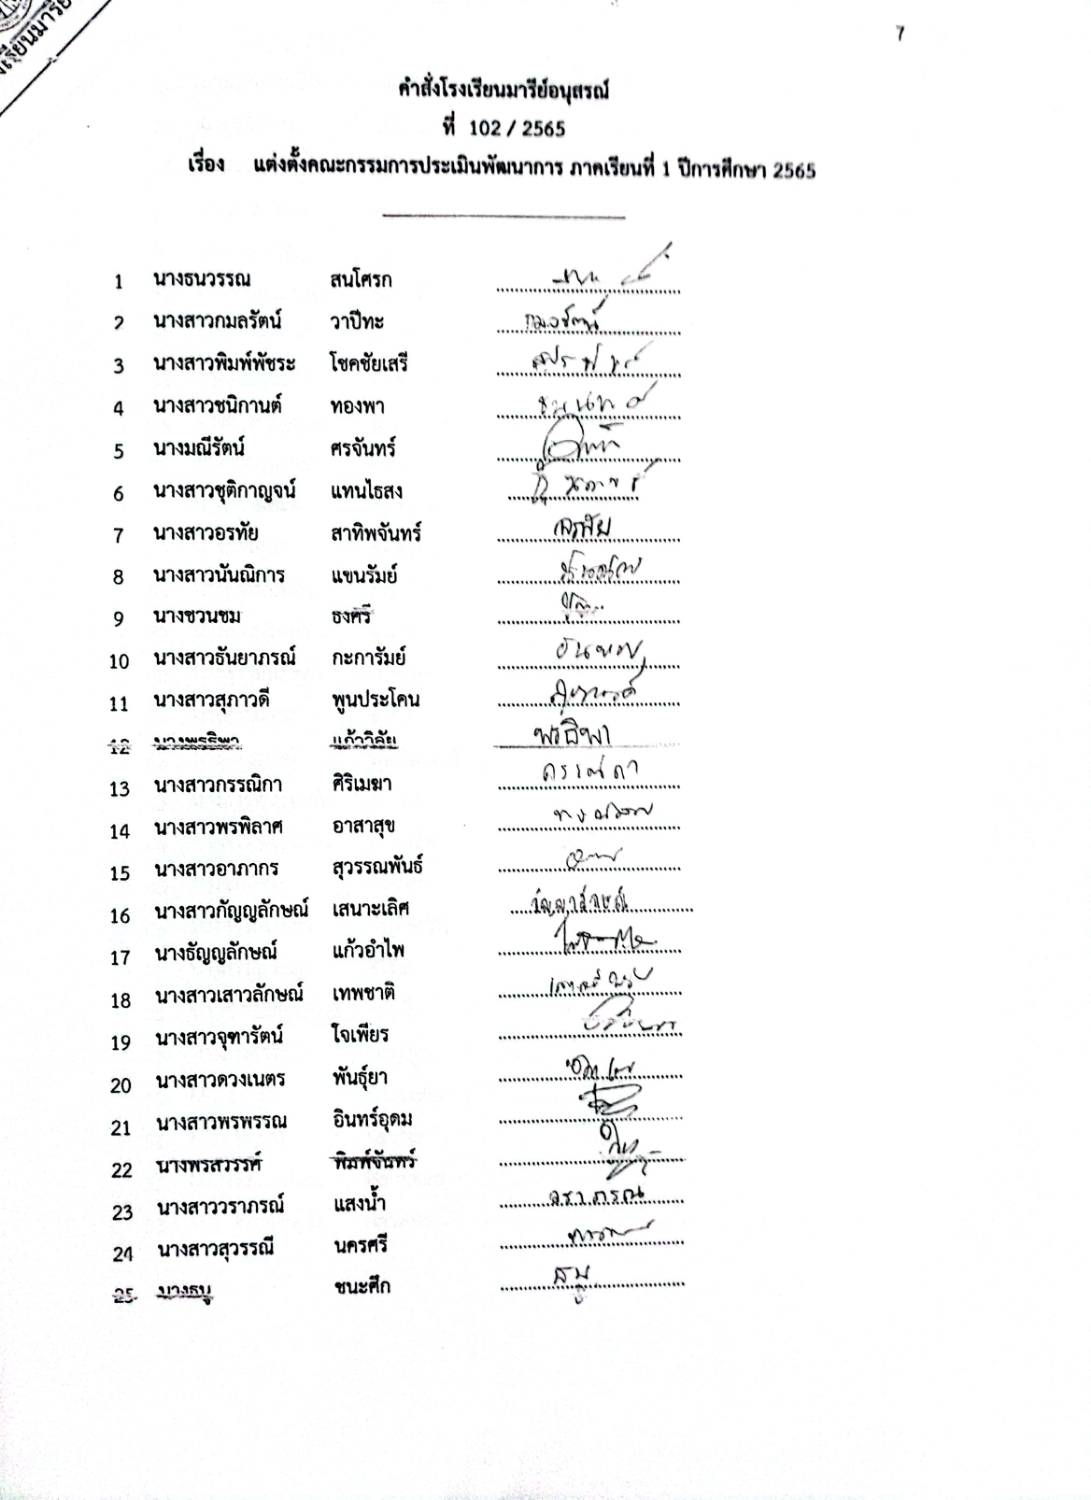 7
คำสั่งโรงเรียนมารีย์อนุสรณ์
ที่ 102 / 2565
เรื่อง แต่งตั้งคณะกรรมการประเมินพัฒนาการ ภาคเรียนที่ 1 ปีการศึกษา 2565
1 นางธนวรรณ สนโศรก
2 นางสาวกมลรัตน์ วาปีทะ กมลรัตน์
3 นางสาวพิมพ์พัชระ โชคชัยเสรี
4 นางสาวชนิกานต์ ทองพา
5 นางมณีรัตน์ ศรจันทร์
6 นางสาวชุติกาญจน์ แทนไธสง
7 นางสาวอรทัย สาทิพจันทร์ อรทัย
8 นางสาวนันณิการ แขนรัมย์
9 นางชวนชม ธงศรี
10 นางสาวธันยาภรณ์ กะการัมย์
11 นางสาวสุภาวดี พูนประโคน
12 นางพรธิพา แก้ววิลัย พรธิพา
13 นางสาวกรรณิกา ศิริเมฆา
14 นางสาวพรพิลาศ อาสาสุข
15 นางสาวอาภากร สุวรรณพันธ์
16 นางสาวกัญญลักษณ์ เสนาะเลิศ
17 นางธัญญลักษณ์ แก้วอำไพ
18 นางสาวเสาวลักษณ์ เทพชาติ
19 นางสาวจุฑารัตน์ ใจเพียร
20 นางสาวดวงเนตร พันธุ์ยา
21 นางสาวพรพรรณ อินทร์อุดม
22 นางพรสวรรค์ พิมพ์จันทร์
23 นางสาววราภรณ์ แสงน้ำ วราภรณ์
24 นางสาวสุวรรณี นครศรี
25 นางธนู ชนะศึก ธนู